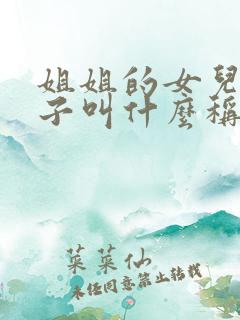 姐姐的女兒
子叫什麼稱
菜菜仙
未经同意禁止转载